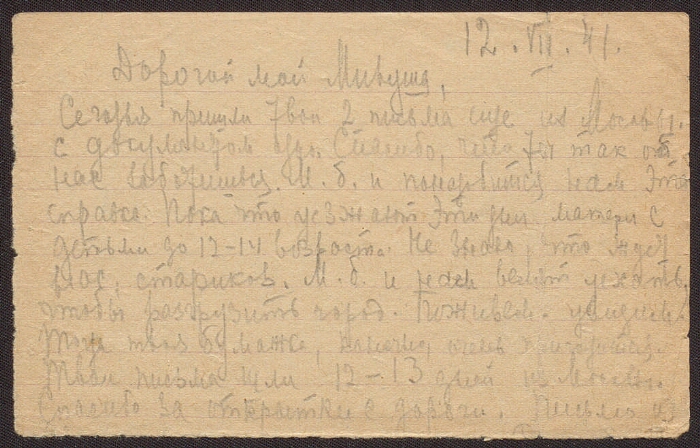 12.VII.41.
Дорогой мой Мивуша,
Сегодня пришли твои 2 письма еще из Москвы
с документом. Спасибо, что ты так об
нас заботишься. М.б. и понадобится нам эта
справка. Пока что уезжают эти дни матери с
детьми до 12-14 возраста. Не знаю, что ждет
нас, стариков. М.б. и нам велят уехать,
чтобы разгрузить город. Поживем - увидим.
Тогда твоя бумажка, конечно, очень пригодится.
Твои письма шли 12-13 дней из Москвы.
Спасибо за открытки с дороги. Письмо из